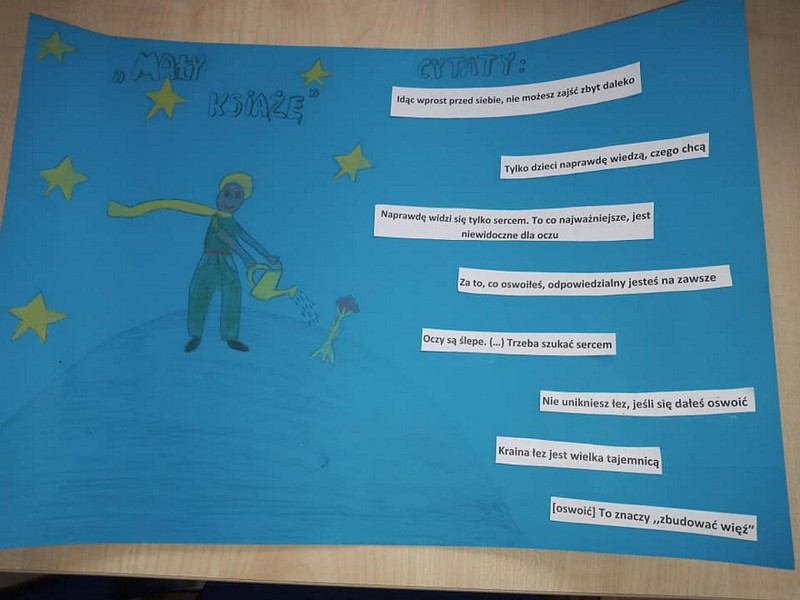 „MAŁY
KSIĄŻĘ”
CYTATY:
Idąc wprost przed siebie, nie możesz zajść zbyt daleko
Tylko dzieci naprawdę wiedzą, czego chcą
Naprawdę widzi się tylko sercem. To co najważniejsze, jest
niewidoczne dla oczu
Za to, co oswoiłeś, odpowiedzialny jesteś na zawsze
Oczy są ślepe. (...) Trzeba szukać sercem
Nie unikniesz łez, jeśli się dałeś oswoić
Kraina łez jest wielka tajemnicą
[oswoić] To znaczy ,,zbudować więź”